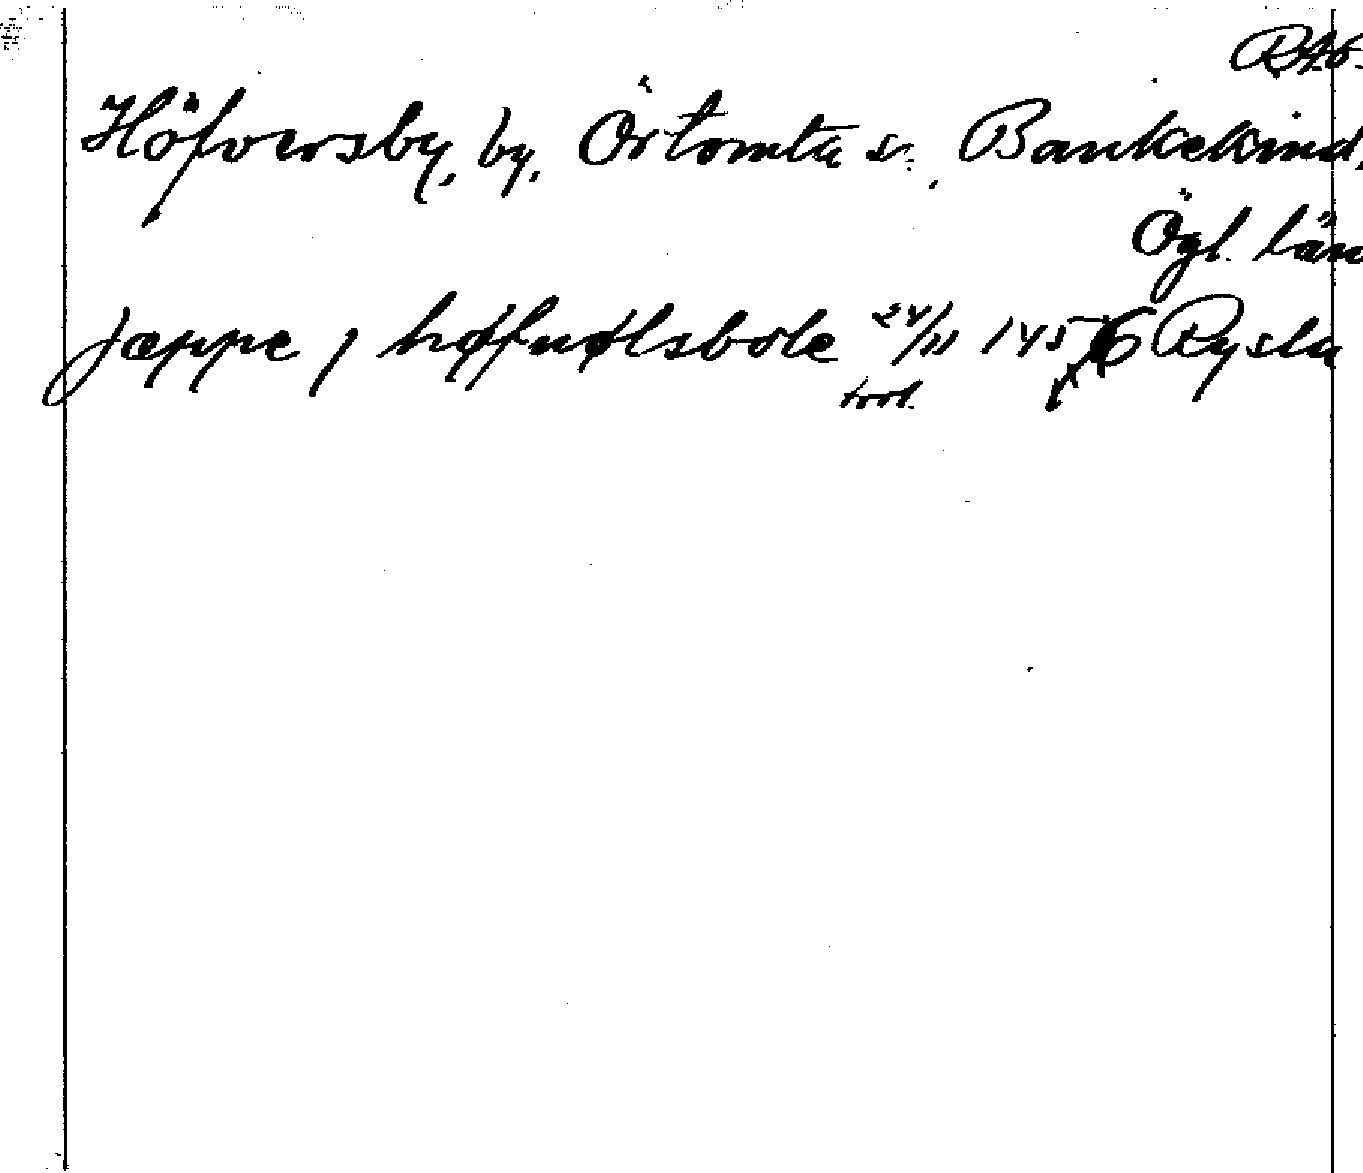 RAÖ.
Höfversby, by, Örtomta s., Bankekind,
Ögl. län
Jæppe j høfnølsbole 24/11 1456 Rysla